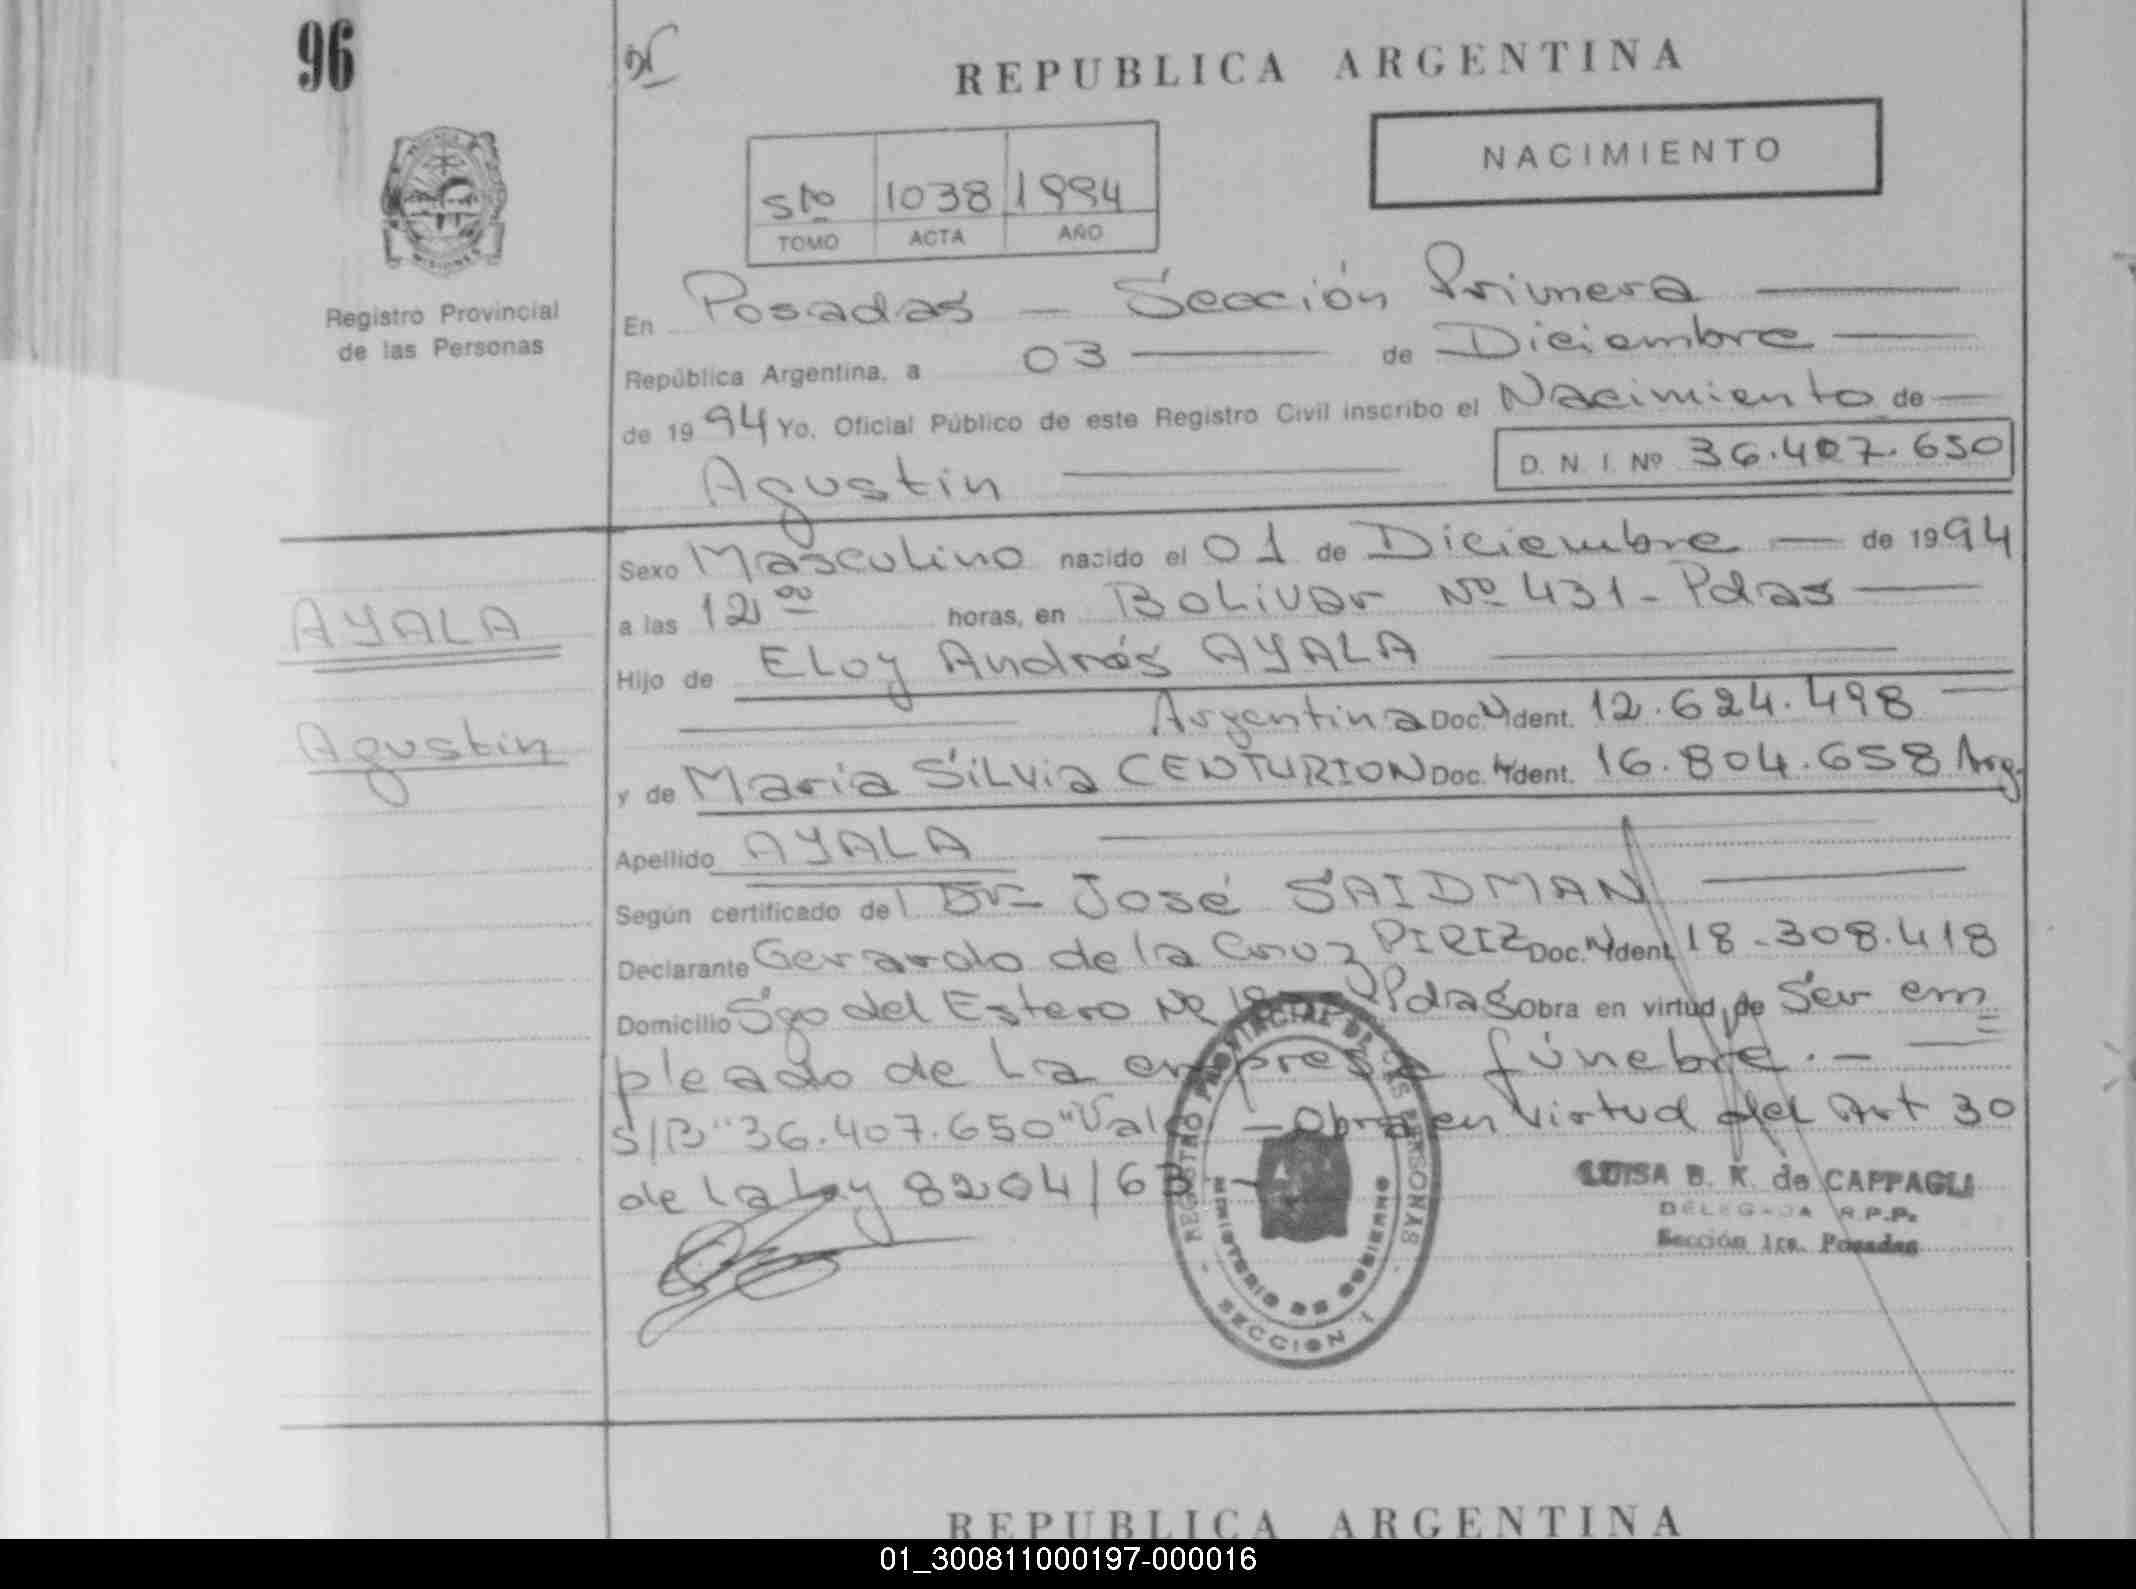 96
REPUBLICA ARGENTINA
NACIMIENTO
5to 1038 1994
TOMO ACTA AÑO
Registro Provincial
de las Personas
En Posadas — Sección Primera
República Argentina, a 03 de Diciembre
de 1994 Yo, Oficial Público de este Registro Civil inscribo el Nacimiento de
D. N. I. Nº 36.407.650
Agustin
Sexo Masculino nacido el 01 de Diciembre — de 1994
AYALA
a las 12 00 horas, en Bolivar Nº 431 - Pdas
Hijo de Eloy Andrés AYALA
Argentina Doc. Ident. 12.624.498
Agustin
y de Maria Silvia CENTURION Doc. Ident. 16.804.658 Arg.
Apellido AYALA
Según certificado del Dr. José SAIDMAN
Declarante Gerardo de la Cruz PIRIZ Doc. Ident. 18.308.418
Domicilio Sgo del Estero Nº Pdas Obra en virtud de Ser em
pleado de la empresa fúnebre. —
S/B "36.407.650" Vale — Obra en virtud del Art 30
de la Ley 8204/63 —
LUISA B. K. de CAPPAGLI
DELEGADA R.P.P.
Sección 1ra. Posadas
REGISTRO PROVINCIAL DE LAS PERSONAS
MINISTERIO DE GOBIERNO
SECCION 1
REPUBLICA ARGENTINA
01_300811000197-000016